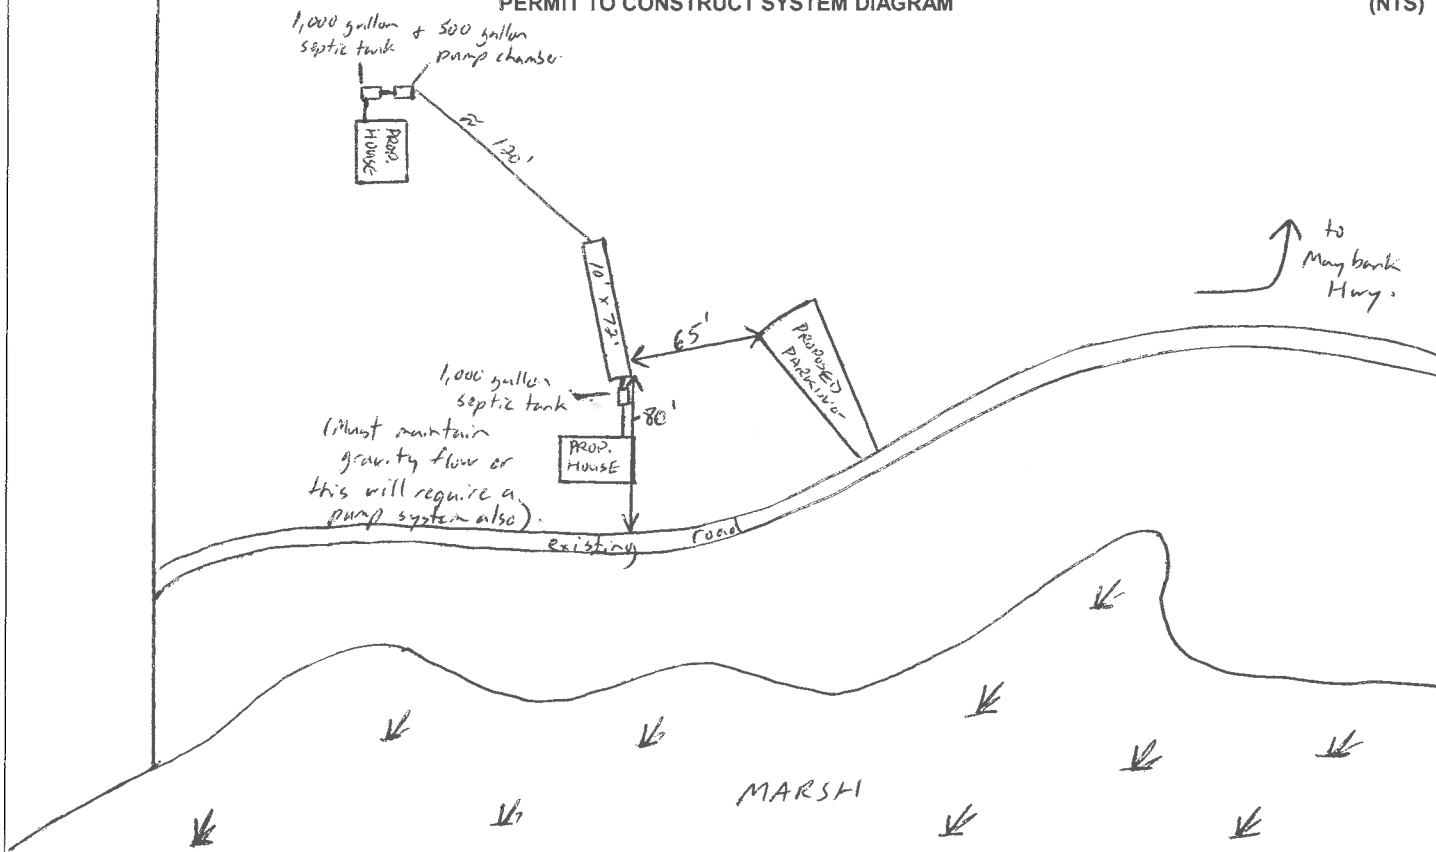 PERMIT TO CONSTRUCT SYSTEM DIAGRAM
(NTS)
1,000 gallon
septic tank
+ 500 gallon
pump chamber
PROP.
HOUSE
≈ 120'
10' x 72'
65'
PROPOSED
PARKING
to
Maybank
Hwy.
1,000 gallon
septic tank
80'
(Must maintain
gravity flow or
this will require a
pump system also).
PROP.
HOUSE
existing road
MARSH